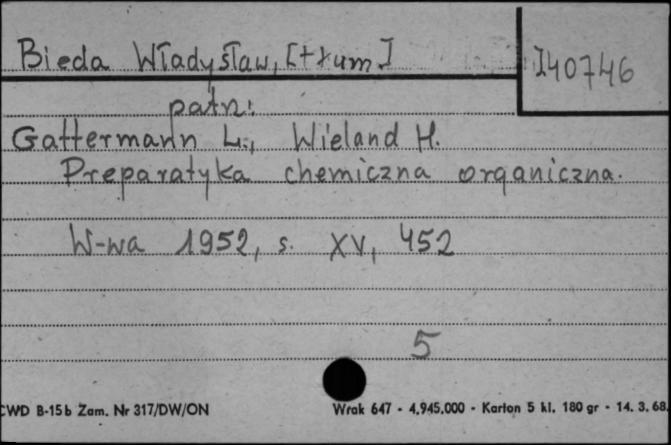 Bieda Władysław, [tłum.]
I40746
patrz:
Gattermann L., Wieland H.
Preparatyka chemiczna organiczna.
W-wa 1952, s. XV, 452
5
CWD B-15b Zam. Nr 317/DW/ON
Wrak 647 - 4.945.000 - Karton 5 kl. 180 gr - 14. 3. 68.